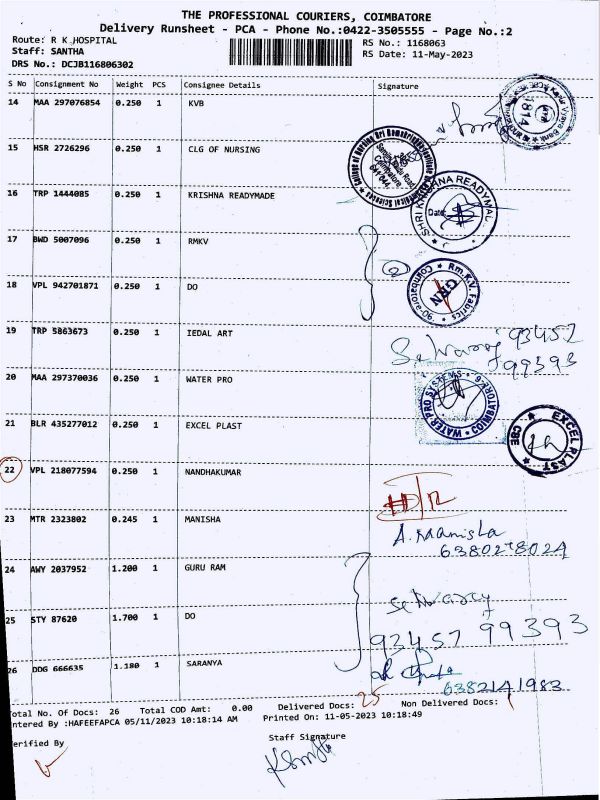 THE PROFESSIONAL COURIERS, COIMBATORE
Delivery Runsheet - PCA - Phone No.:0422-3505555 - Page No.:2
Route: R K HOSPITAL
RS No.: 1168063
Staff: SANTHA
RS Date: 11-May-2023
DRS No.: DCJB116806302
S No Consignment No Weight PCS Consignee Details Signature
14 MAA 297076854 0.250 1 KVB
1814
15 HSR 2726296 0.250 1 CLG OF NURSING
16 TRP 1444085 0.250 1 KRISHNA READYMADE
SHRI KRISHNA READYMAL
Date:
17 BWD 5007096 0.250 1 RMKV
18 VPL 942701871 0.250 1 DO
Rm.K.V. Fabrics
GRN
19 TRP 5863673 0.250 1 IEDAL ART
Selvaraj 93457
99393
20 MAA 297370036 0.250 1 WATER PRO
WATER PRO SYSTEMS
21 BLR 435277012 0.250 1 EXCEL PLAST
EXCEL PLAST CBE
22 VPL 218077594 0.250 1 NANDHAKUMAR
23 MTR 2323802 0.245 1 MANISHA
A. Manisha
24 AWY 2037952 1.200 1 GURU RAM
Selvaraj
25 STY 87620 1.700 1 DO
93457 99393
26 DDG 666635 1.180 1 SARANYA
Total No. Of Docs: 26 Total COD Amt: 0.00 Delivered Docs: 25 Non Delivered Docs: 1
Entered By :HAFEEFAPCA 05/11/2023 10:18:14 AM Printed On: 11-05-2023 10:18:49
Verified By
Staff Signature